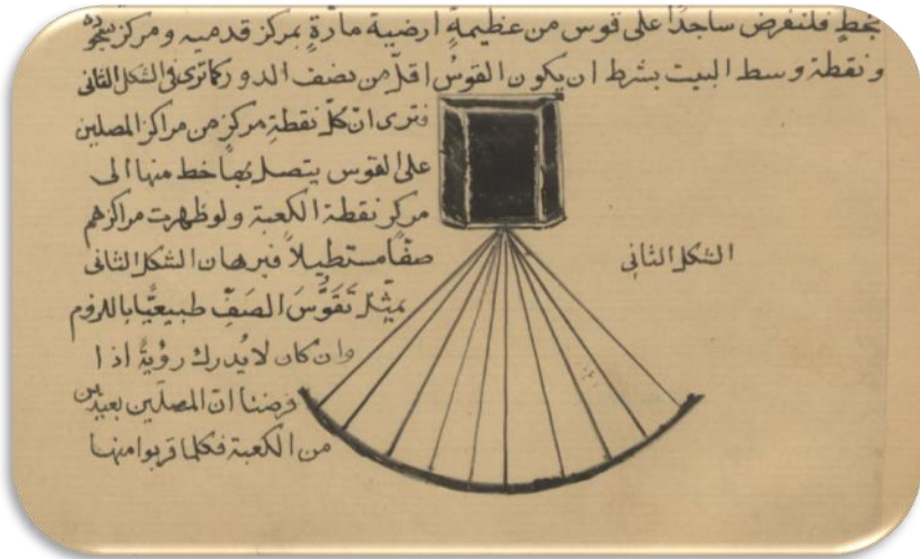 بخطٍ فلنفرض ساجداً على قوس من عظيمةٍ ارضية مارّةٍ بمركز قدميه ومركز سجوده
ونقطة وسط البيت بشرط ان يكون القوسُ اقلّ من نصف الدور كما ترى في الشكل الثاني
فترى انّ كلّ نقطةِ مركزٍ من مراكز المصلين
على القوس يتصل بها خط منها الى
مركز نقطة الكعبة ولو ظهرت مراكزهم
صفّاً مستطيلاً فبرهان الشكل الثاني
الشكل الثاني
يمثّل تَقَوُّسَ الصَفِّ طبيعيّاً باللزوم
وان كان لا يُدرك رؤيةً اذا
فرضنا انّ المصلّين بعيدين
من الكعبة فكلما قربوا منها